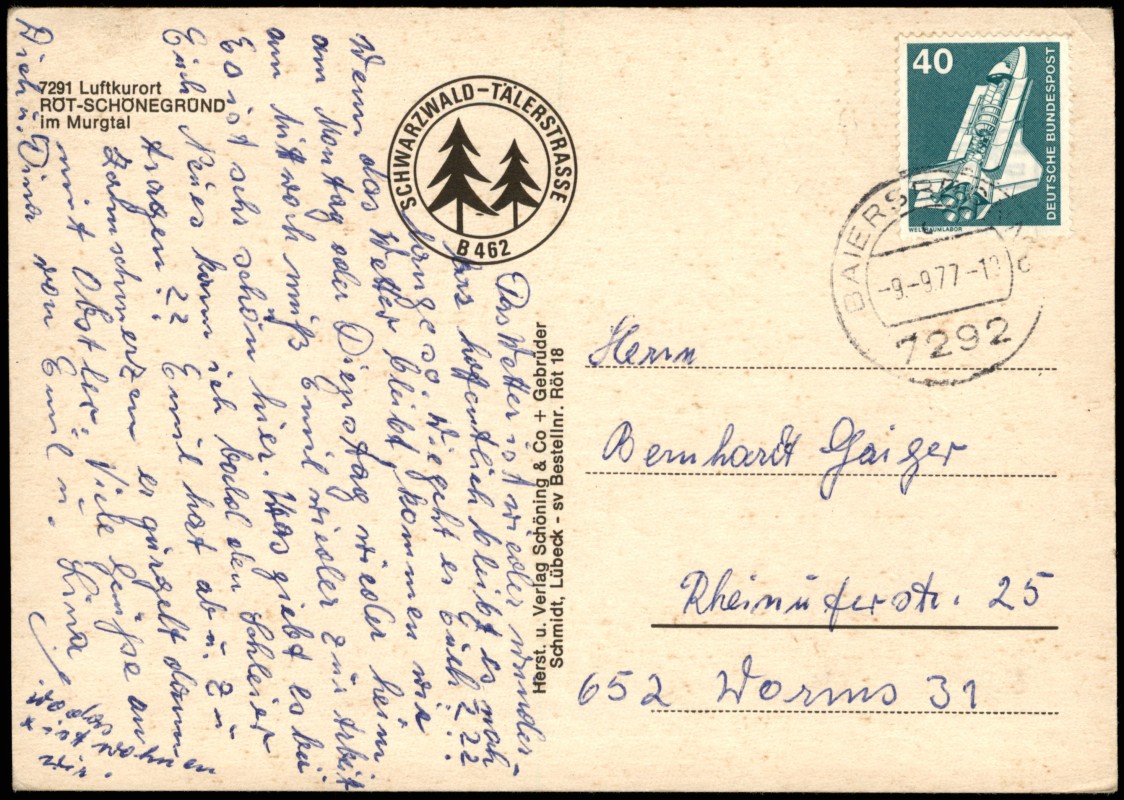 7291 Luftkurort
RÖT-SCHÖNEGRÜND
im Murgtal
SCHWARZWALD-TÄLERSTRASSE
B 462
Das Wetter ist wieder wunder-
bar hoffentlich bleibt es noch
lange so. Wie geht es Euch??
Wenn das Wetter bleibt, kommen wir
am Montag oder Dienstag wieder heim
am Mittwoch muß Emil wieder zur Arbeit
Es ist sehr schön hier. Was giebt es bei
Euch Neues kann ich bald den Schleier
tragen?? Emil hat ab u. zu
Zahnschmerzen er gurgelt dann
mit Obstler. Viele Grüße an
Dich u. Tina von Emil u. Lina
Herst. u. Verlag Schöning & Co + Gebrüder
Schmidt, Lübeck - sv Bestellnr. Röt 18
40
DEUTSCHE BUNDESPOST
WELTRAUMLABOR
-9.-9.77-
7292
Herrn
Bernhardt Gaiger
Rheinuferstr. 25
652 Worms 31